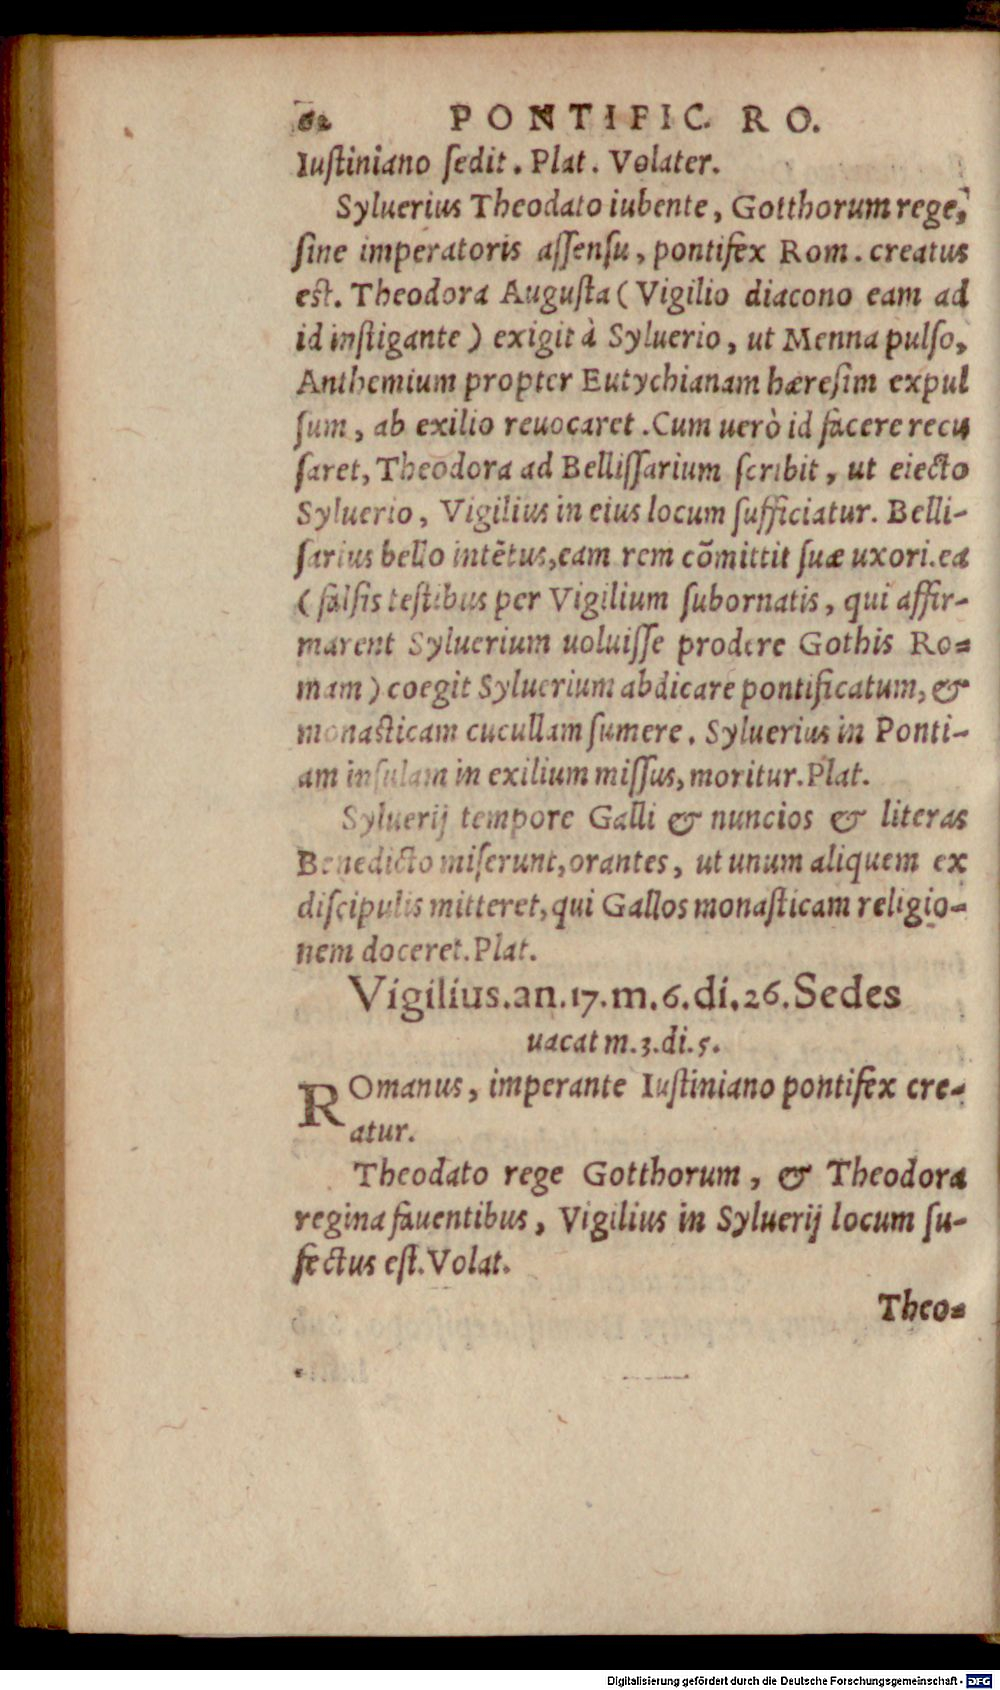 62 PONTIFIC. RO.
Iuſtiniano ſedit. Plat. Volater.
Syluerius Theodato iubente, Gotthorum rege,
ſine imperatoris aſſenſu, pontifex Rom. creatus
est. Theodora Auguſta (Vigilio diacono eam ad
id inſtigante) exigit à Syluerio, ut Menna pulſo,
Anthemium propter Eutychianam hæreſim expul
ſum, ab exilio reuocaret. Cum uerò id facere recu
ſaret, Theodora ad Belliſſarium ſcribit, ut eiecto
Syluerio, Vigilius in eius locum ſufficiatur. Belli-
ſarius bello intẽtus, eam rem cõmittit ſuæ uxori. ea
(falſis teſtibus per Vigilium ſubornatis, qui affir-
marent Syluerium uoluiſſe prodere Gothis Ro-
mam) coegit Syluerium abdicare pontificatum, &
monaſticam cucullam ſumere. Syluerius in Ponti-
am inſulam in exilium miſſus, moritur. Plat.
Syluerij tempore Galli & nuncios & literas
Benedicto miſerunt, orantes, ut unum aliquem ex
diſcipulis mitteret, qui Gallos monaſticam religio-
nem doceret. Plat.
Vigilius. an. 17. m. 6. di. 26. Sedes
uacat m. 3. di. 5.
ROmanus, imperante Iuſtiniano pontifex cre-
atur.
Theodato rege Gotthorum, & Theodora
regina fauentibus, Vigilius in Syluerij locum ſu-
fectus eſt. Volat.
Theo-
Digitalisierung gefördert durch die Deutsche Forschungsgemeinschaft - DFG